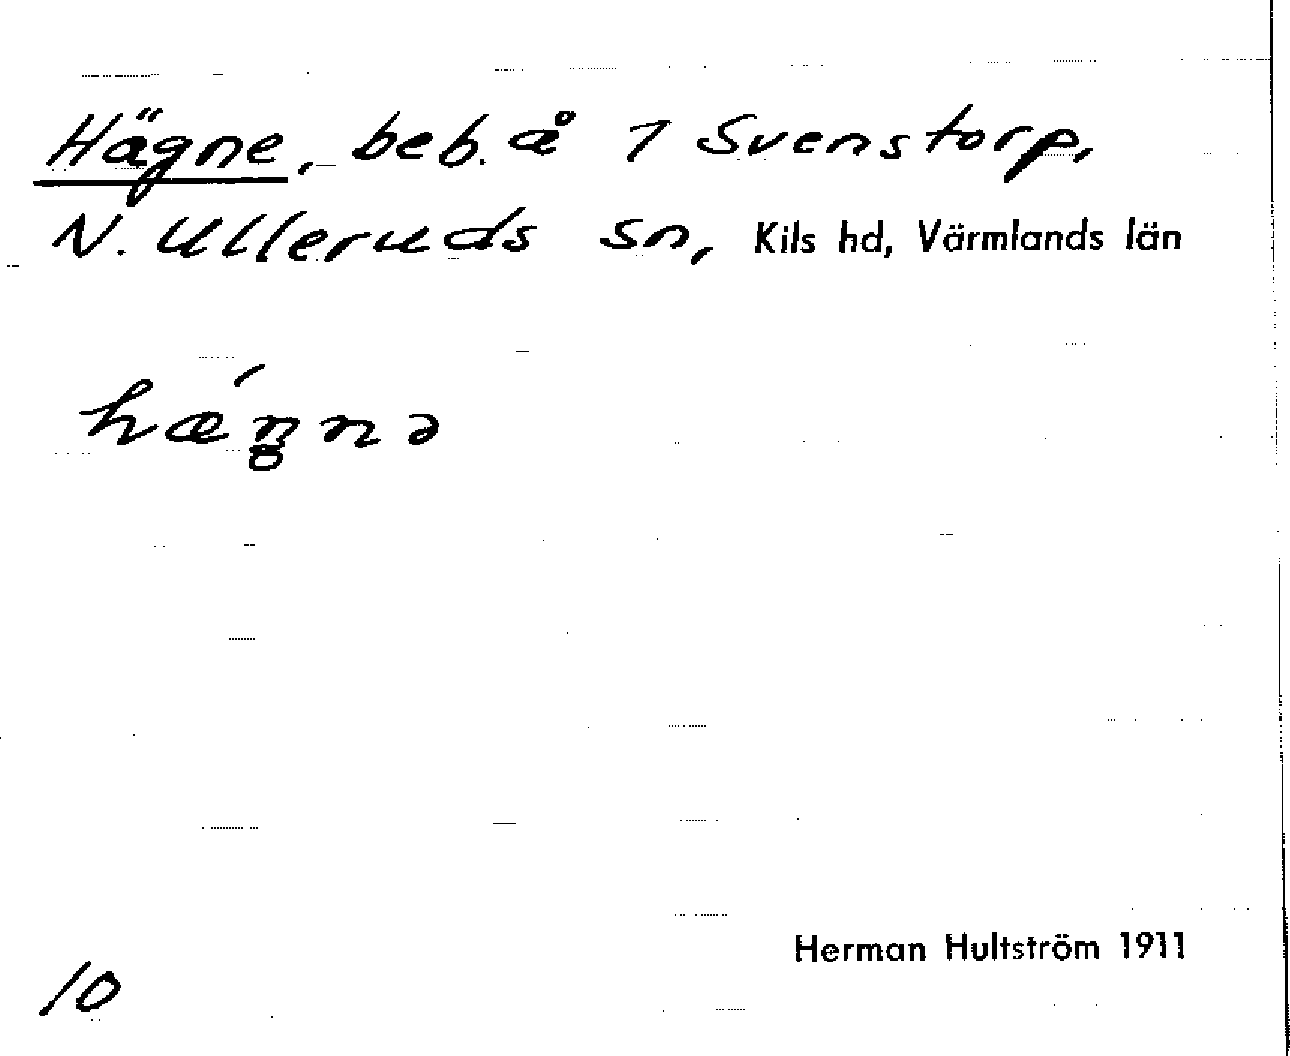 Hägne, beb. å 1 Svenstorp,
N. Ulleruds sn, Kils hd, Värmlands län
hǽŋnə
Herman Hultström 1911
10